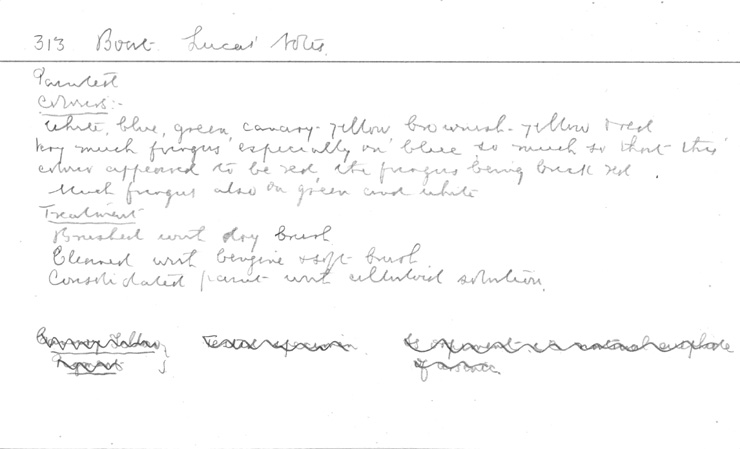 313 Boat Lucas' Notes.
Painted
Colours:-
White, blue, green, canary-yellow, brownish-yellow & red
Very much fungus, especially on blue, so much so that this
colour appeared to be red, the fungus being brick red.
Much fungus also on green and white
Treatment
Brushed with dry brush
Cleaned with benzine & soft brush
Consolidated paint with celluloid solution.
Canary Yellow